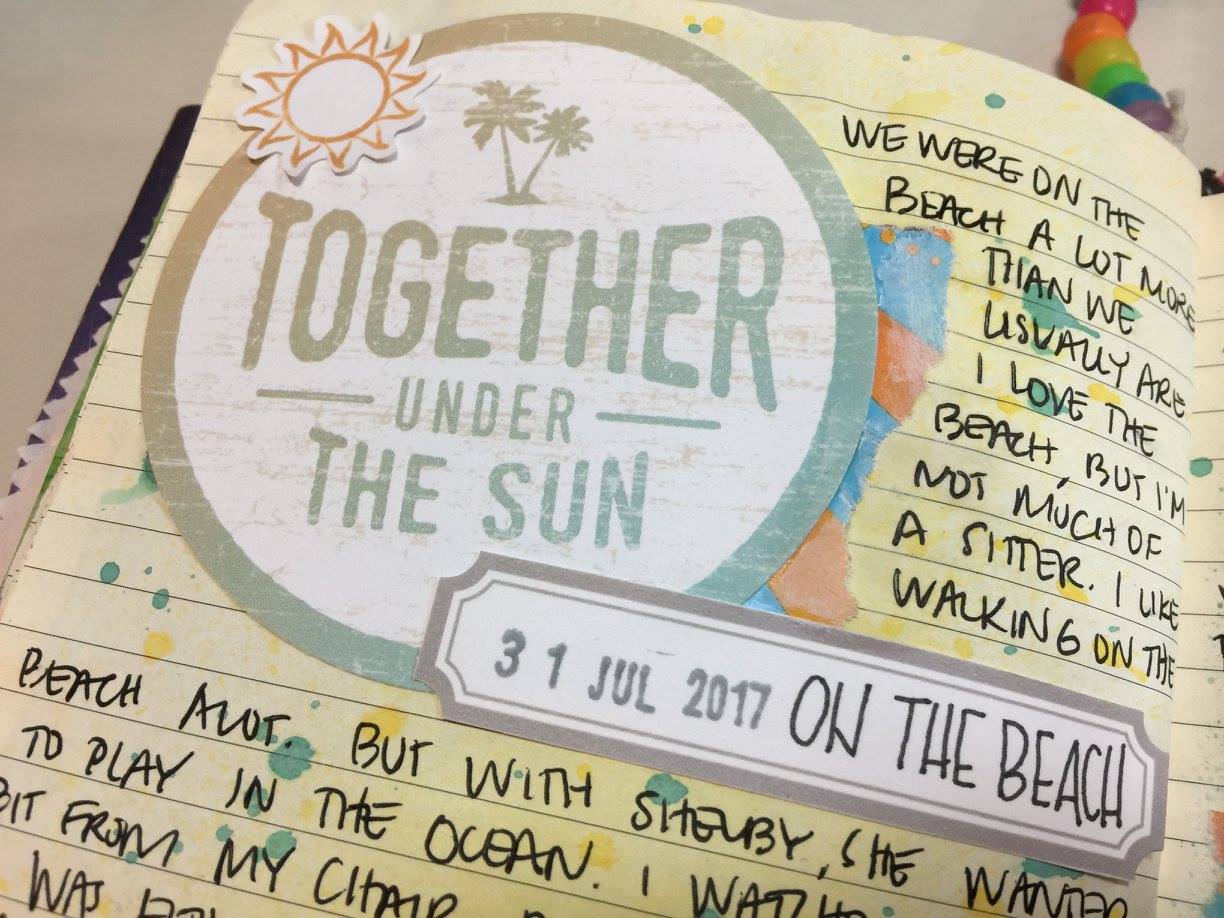 TOGETHER
UNDER
THE SUN
31 JUL 2017 ON THE BEACH
WE WERE ON THE
BEACH A LOT MORE
THAN WE
USUALLY ARE
I LOVE THE
BEACH, BUT I'M
NOT MUCH OF
A SITTER. I LIKE
WALKING ON THE
BEACH ALOT. BUT WITH SHELBY, SHE WANTED
TO PLAY IN THE OCEAN. I
BIT FROM MY CHAIR
WAS